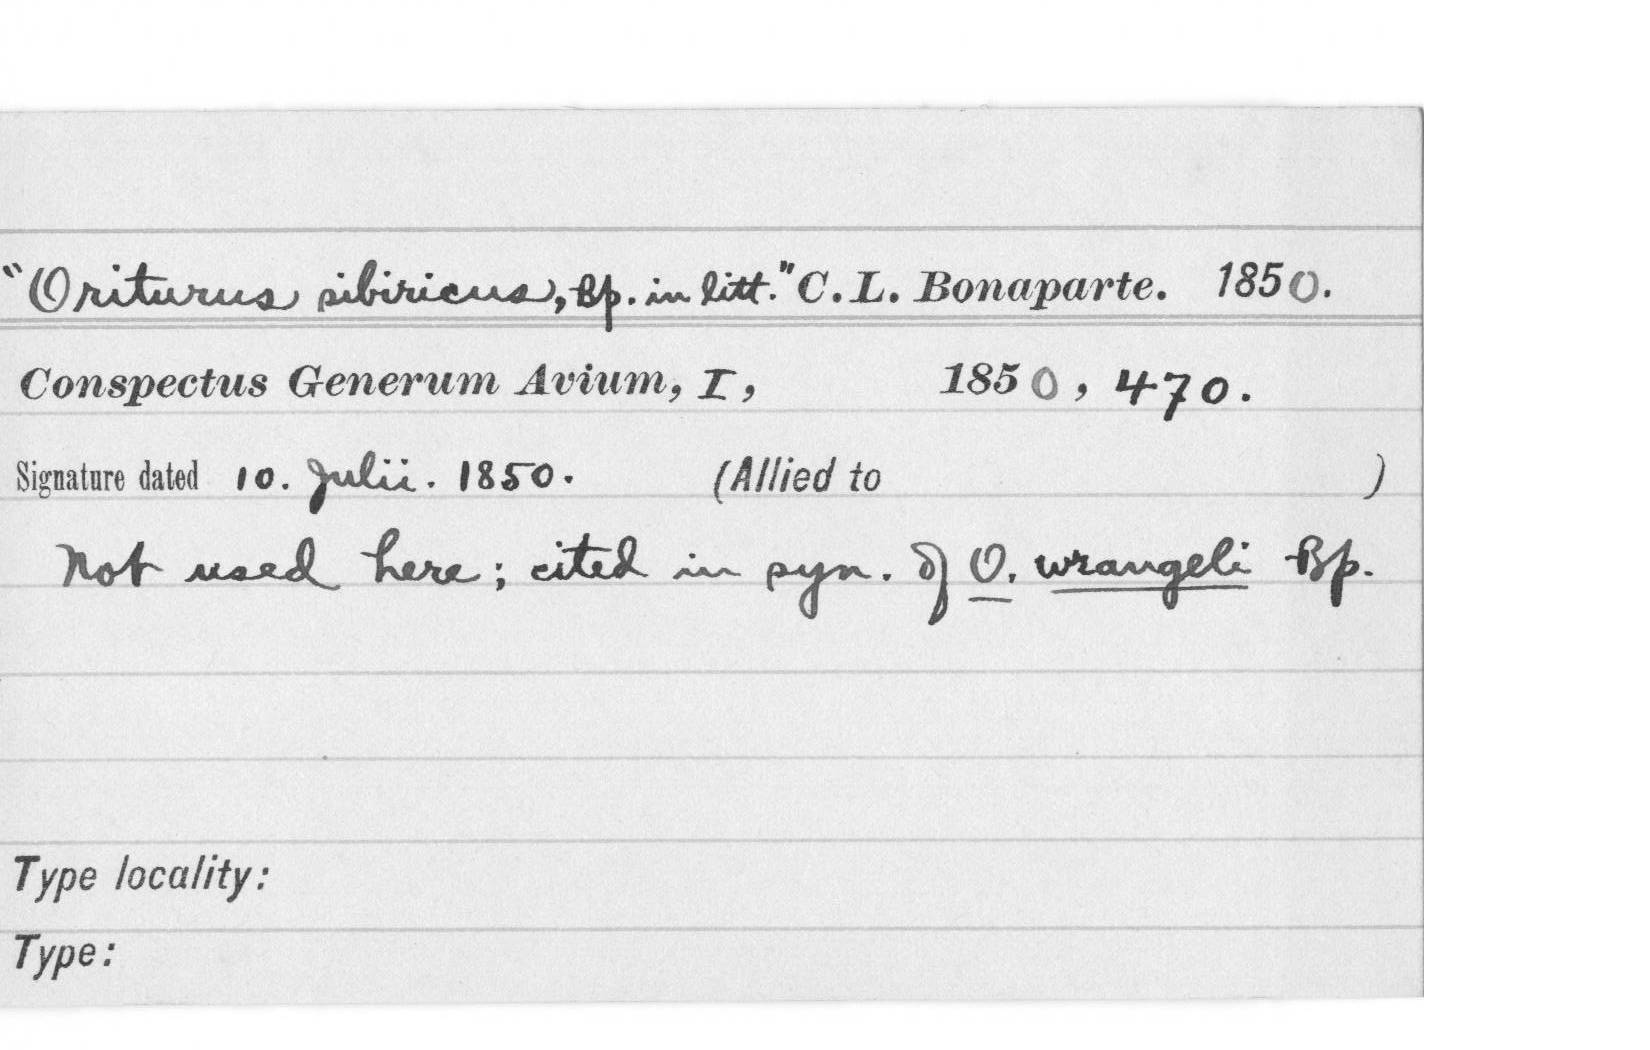 "Oriturus sibiricus, Bp. in litt." C. L. Bonaparte. 1850.
Conspectus Generum Avium, I, 1850, 470.
Signature dated 10. Julii. 1850. (Allied to )
Not used here; cited in syn. of O. wrangeli Bp.
Type locality:
Type: